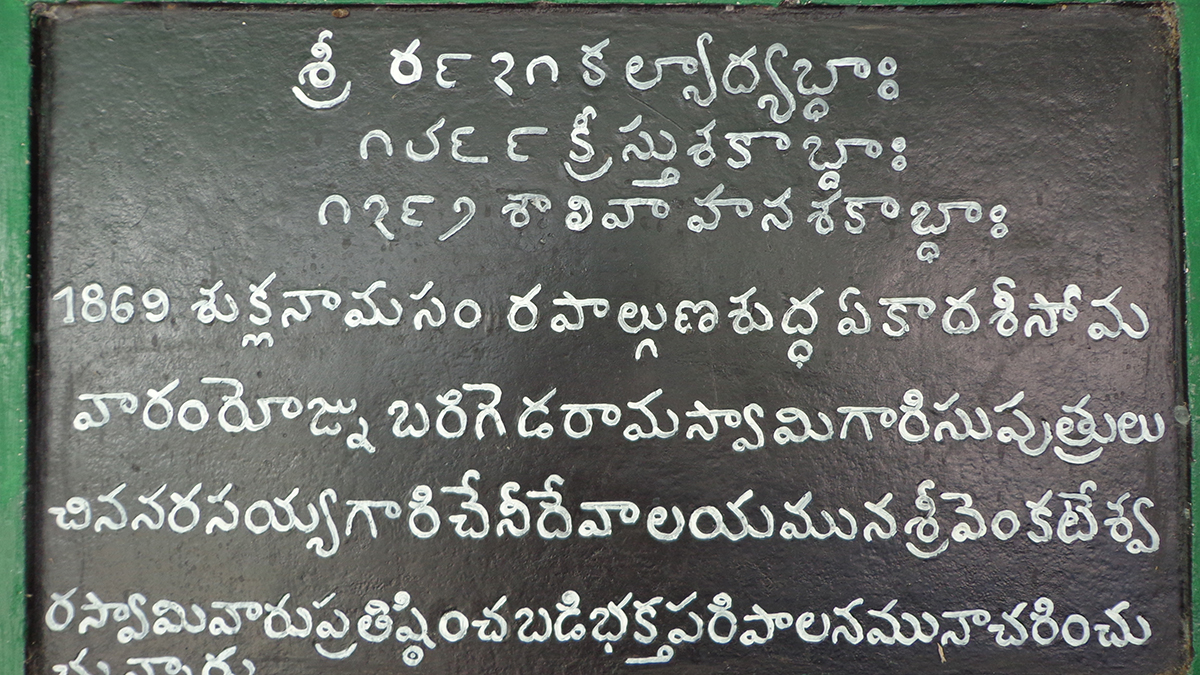 శ్రీ ౪౯౭౧ కల్యాద్యబ్ధాః
౧౮౬౯ క్రీస్తుశకాబ్దాః
౧౭౯౧ శాలివాహనశకాబ్ధాః
1869 శుక్లనామసం రపాల్గుణశుద్ధ ఏకాదశీసోమ
వారంరోజ్ను బరిగెడరామస్వామిగారిసుపుత్రులు
చిననరసయ్యగారిచేనీదేవాలయమునశ్రీవెంకటేశ్వ
రస్వామివారుప్రతిష్ఠించబడిభక్తపరిపాలనమునాచరించు
చున్నారు